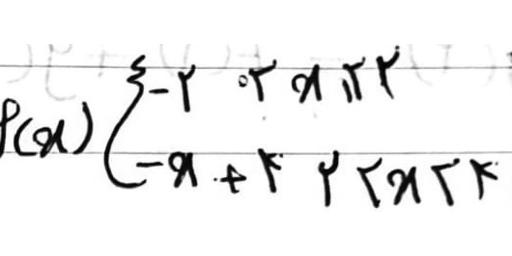 f(x) { -۲ ۰ < x ≤ ۲
-x + ۴ ۲ < x < ۴